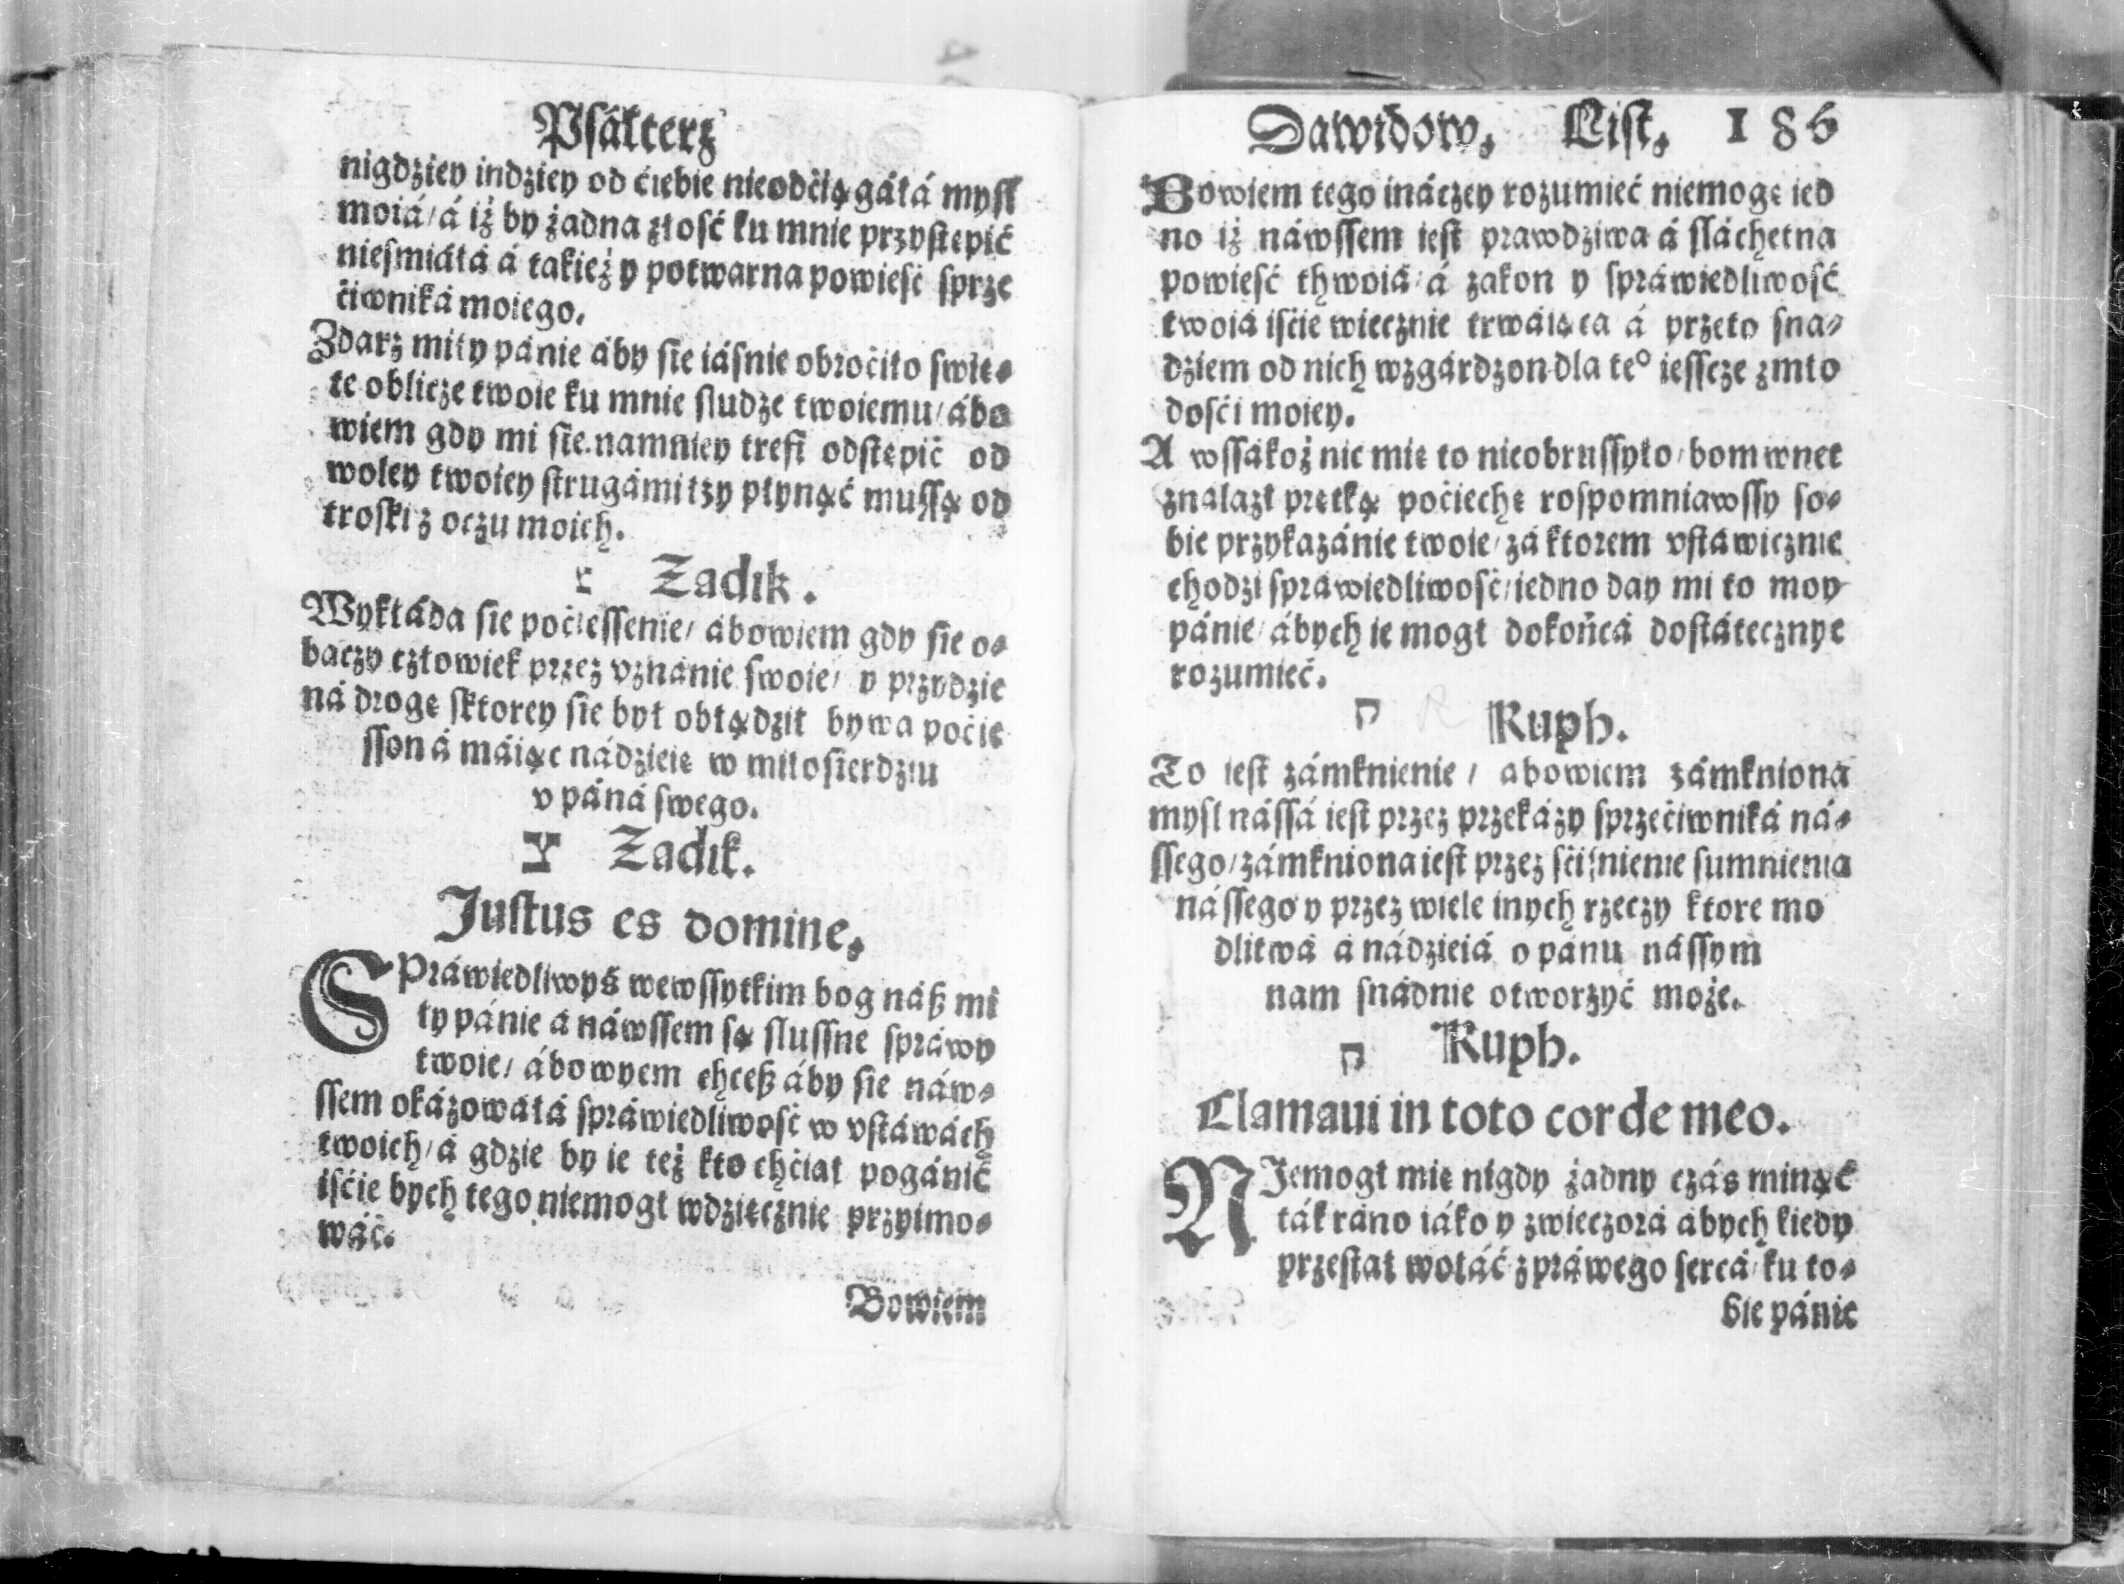 Psálterz
nigdziey indziey od ciebie nieodciągáłá mysl
moiá / á iż by żadna złość ku mnie przystępić
nieśmiáłá á takież y potwarna powieść sprze
ciwniká moiego.
Zdarz miły pánie áby sie iásnie obrociło swię⸗
te oblicze twoie ku mnie słudze twoiemu / ábo
wiem gdy mi sie namniey trefi odstępić od
woley twoiey strugámi łzy płynąć muszą od
troski z oczu moich.
צ Zadik.
Wykłáda sie pociessenie / abowiem gdy sie o⸗
baczy człowiek przez vznánie swoie / y przydzie
ná drogę sktorey sie był obłądził bywa pocie
sson á máiąc nádzieię w miłosierdziu
v páná swego.
צ Zadik.
Justus es domine.
SPráwiedliwyś wewssytkim bog náß mi
ły pánie á náwssem są słussne spráwy
twoie / ábowyem chceß áby sie náw⸗
ssem okázowáłá spráwiedliwość w vstáwách
twoich / á gdzie by ie też kto chciał pogánić
iście bych tego niemogł wdzięcznie przyimo⸗
wáć.
Bowiem
Dawidow. List. 186
Bowiem tego ináczey rozumieć niemogę ied
no iż náwssem iest prawdziwa á sláchetna
powieść thwoiá / á zakon y spráwiedliwość
twoiá iście wiecznie trwáiąca á przeto sna⸗
dziem od nich wzgárdzon dla teº iesscze zmło
dości moiey.
A wssákoż nic mię to nieobrussyło / bom wnet
znalazł prętką pociechę rospomniawssy so⸗
bie przykazánie twoie / zá ktorem vstáwicznie
chodzi spráwiedliwość / iedno day mi to moy
pánie / ábych ie mogł dokońcá dostátecznye
rozumieć.
ק R Kuph.
To iest zámknienie / abowiem zámkniona
mysl nássá iest przez przekázy sprzeciwniká ná⸗
ssego / zámkniona iest przez ściśnienie sumnienia
nássego y przez wiele inych rzeczy ktore mo
dlitwá á nádzieiá o pánu nássym
nam snádnie otworzyć może.
ק Kuph.
Clamaui in toto corde meo.
NJemogł mię nigdy żadny czás minąć
ták ráno iáko y zwieczorá ábych kiedy
przestał wołáć z práwego sercá / ku to⸗
bie pánie